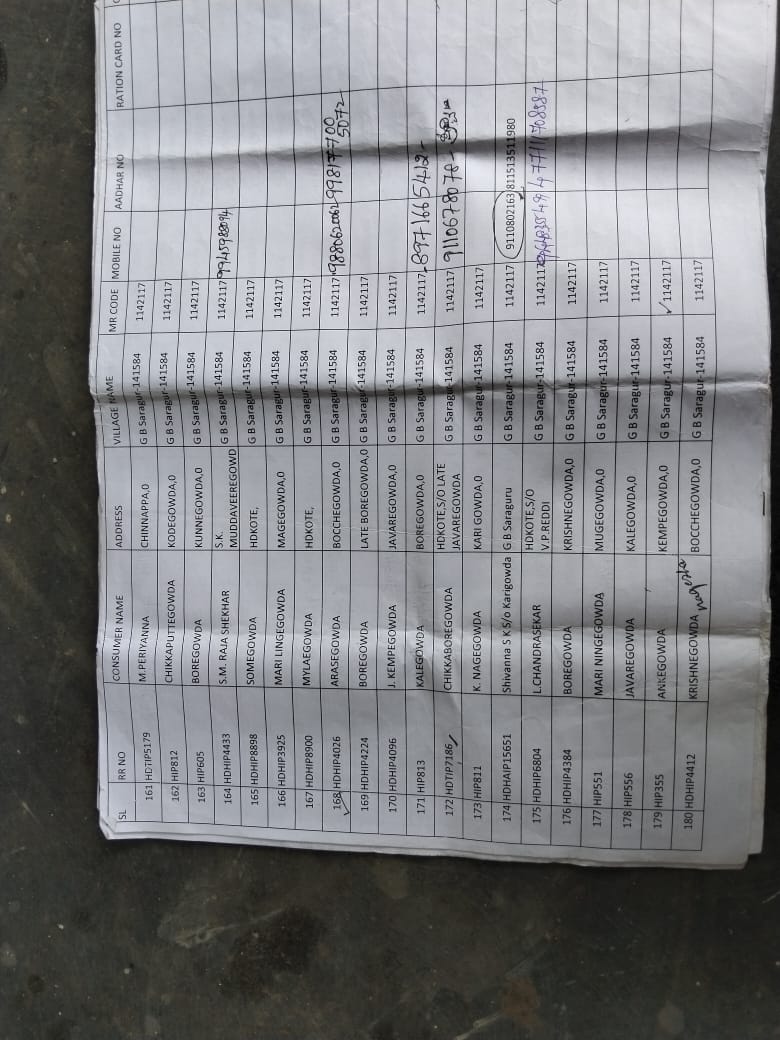 SL RR NO CONSUMER NAME ADDRESS VILLAGE NAME MR CODE MOBILE NO AADHAR NO RATION CARD NO
161 HDTIP5179 M.PERIYANNA CHINNAPPA,0 G B Saragur-141584 1142117
162 HIP812 CHIKKAPUTTEGOWDA KODEGOWDA,0 G B Saragur-141584 1142117
163 HIP605 BOREGOWDA KUNNEGOWDA,0 G B Saragur-141584 1142117
164 HDHIP4433 S.M. RAJA SHEKHAR S.K. MUDDAVEEREGOWD G B Saragur-141584 1142117
165 HDHIP8898 SOMEGOWDA HDKOTE, G B Saragur-141584 1142117
166 HDHIP3925 MARI LINGEGOWDA MAGEGOWDA,0 G B Saragur-141584 1142117
167 HDHIP8900 MYLAEGOWDA HDKOTE, G B Saragur-141584 1142117
168 HDHIP4026 ARASEGOWDA BOCCHEGOWDA,0 G B Saragur-141584 1142117 9880620062
169 HDHIP4224 BOREGOWDA LATE BOREGOWDA,0 G B Saragur-141584 1142117
170 HDHIP4096 J. KEMPEGOWDA JAVAREGOWDA,0 G B Saragur-141584 1142117
171 HIP813 KALEGOWDA BOREGOWDA,0 G B Saragur-141584 1142117 8971665412-
172 HDTIP7186 CHIKKABOREGOWDA HDKOTE,S/O LATE JAVAREGOWDA G B Saragur-141584 1142117 9110678078 -
173 HIP811 K. NAGEGOWDA KARI GOWDA,0 G B Saragur-141584 1142117
174 HDHAIP15651 Shivanna S K S/o Karigowda G B Saraguru G B Saragur-141584 1142117 9110802163 811513511980
175 HDHIP6804 L.CHANDRASEKAR HDKOTE,S/O V.P.REDDI G B Saragur-141584 1142117
176 HDHIP4384 BOREGOWDA KRISHNEGOWDA,0 G B Saragur-141584 1142117
177 HIP551 MARI NINGEGOWDA MUGEGOWDA,0 G B Saragur-141584 1142117
178 HIP556 JAVAREGOWDA KALEGOWDA,0 G B Saragur-141584 1142117
179 HIP355 ANKEGOWDA KEMPEGOWDA,0 G B Saragur-141584 1142117
180 HDHIP4412 KRISHNEGOWDA BOCCHEGOWDA,0 G B Saragur-141584 1142117